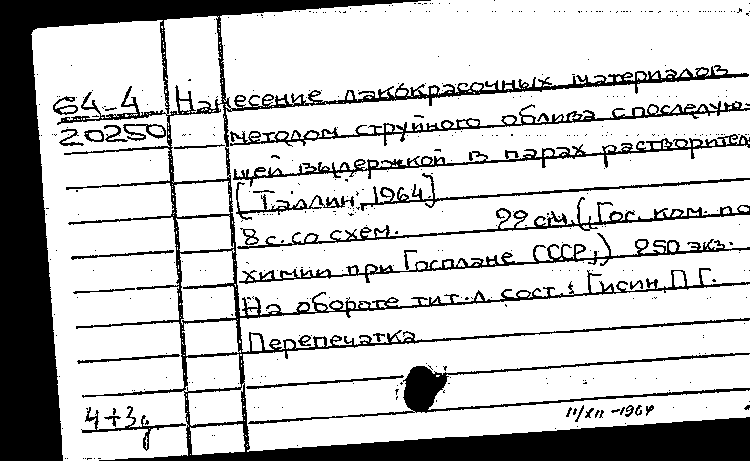 64-4 Нанесение лакокрасочных материалов
20250 методом струйного облива с последую-
щей выдержкой в парах растворител
[Таллин, 1964]
8 с. со схем. 22 см. (Гос. ком. по
химии при Госплане СССР,) 250 экз.
На обороте тит. л. сост.: Гисин П.Г.
Перепечатка
4+3д
11/XII-1964